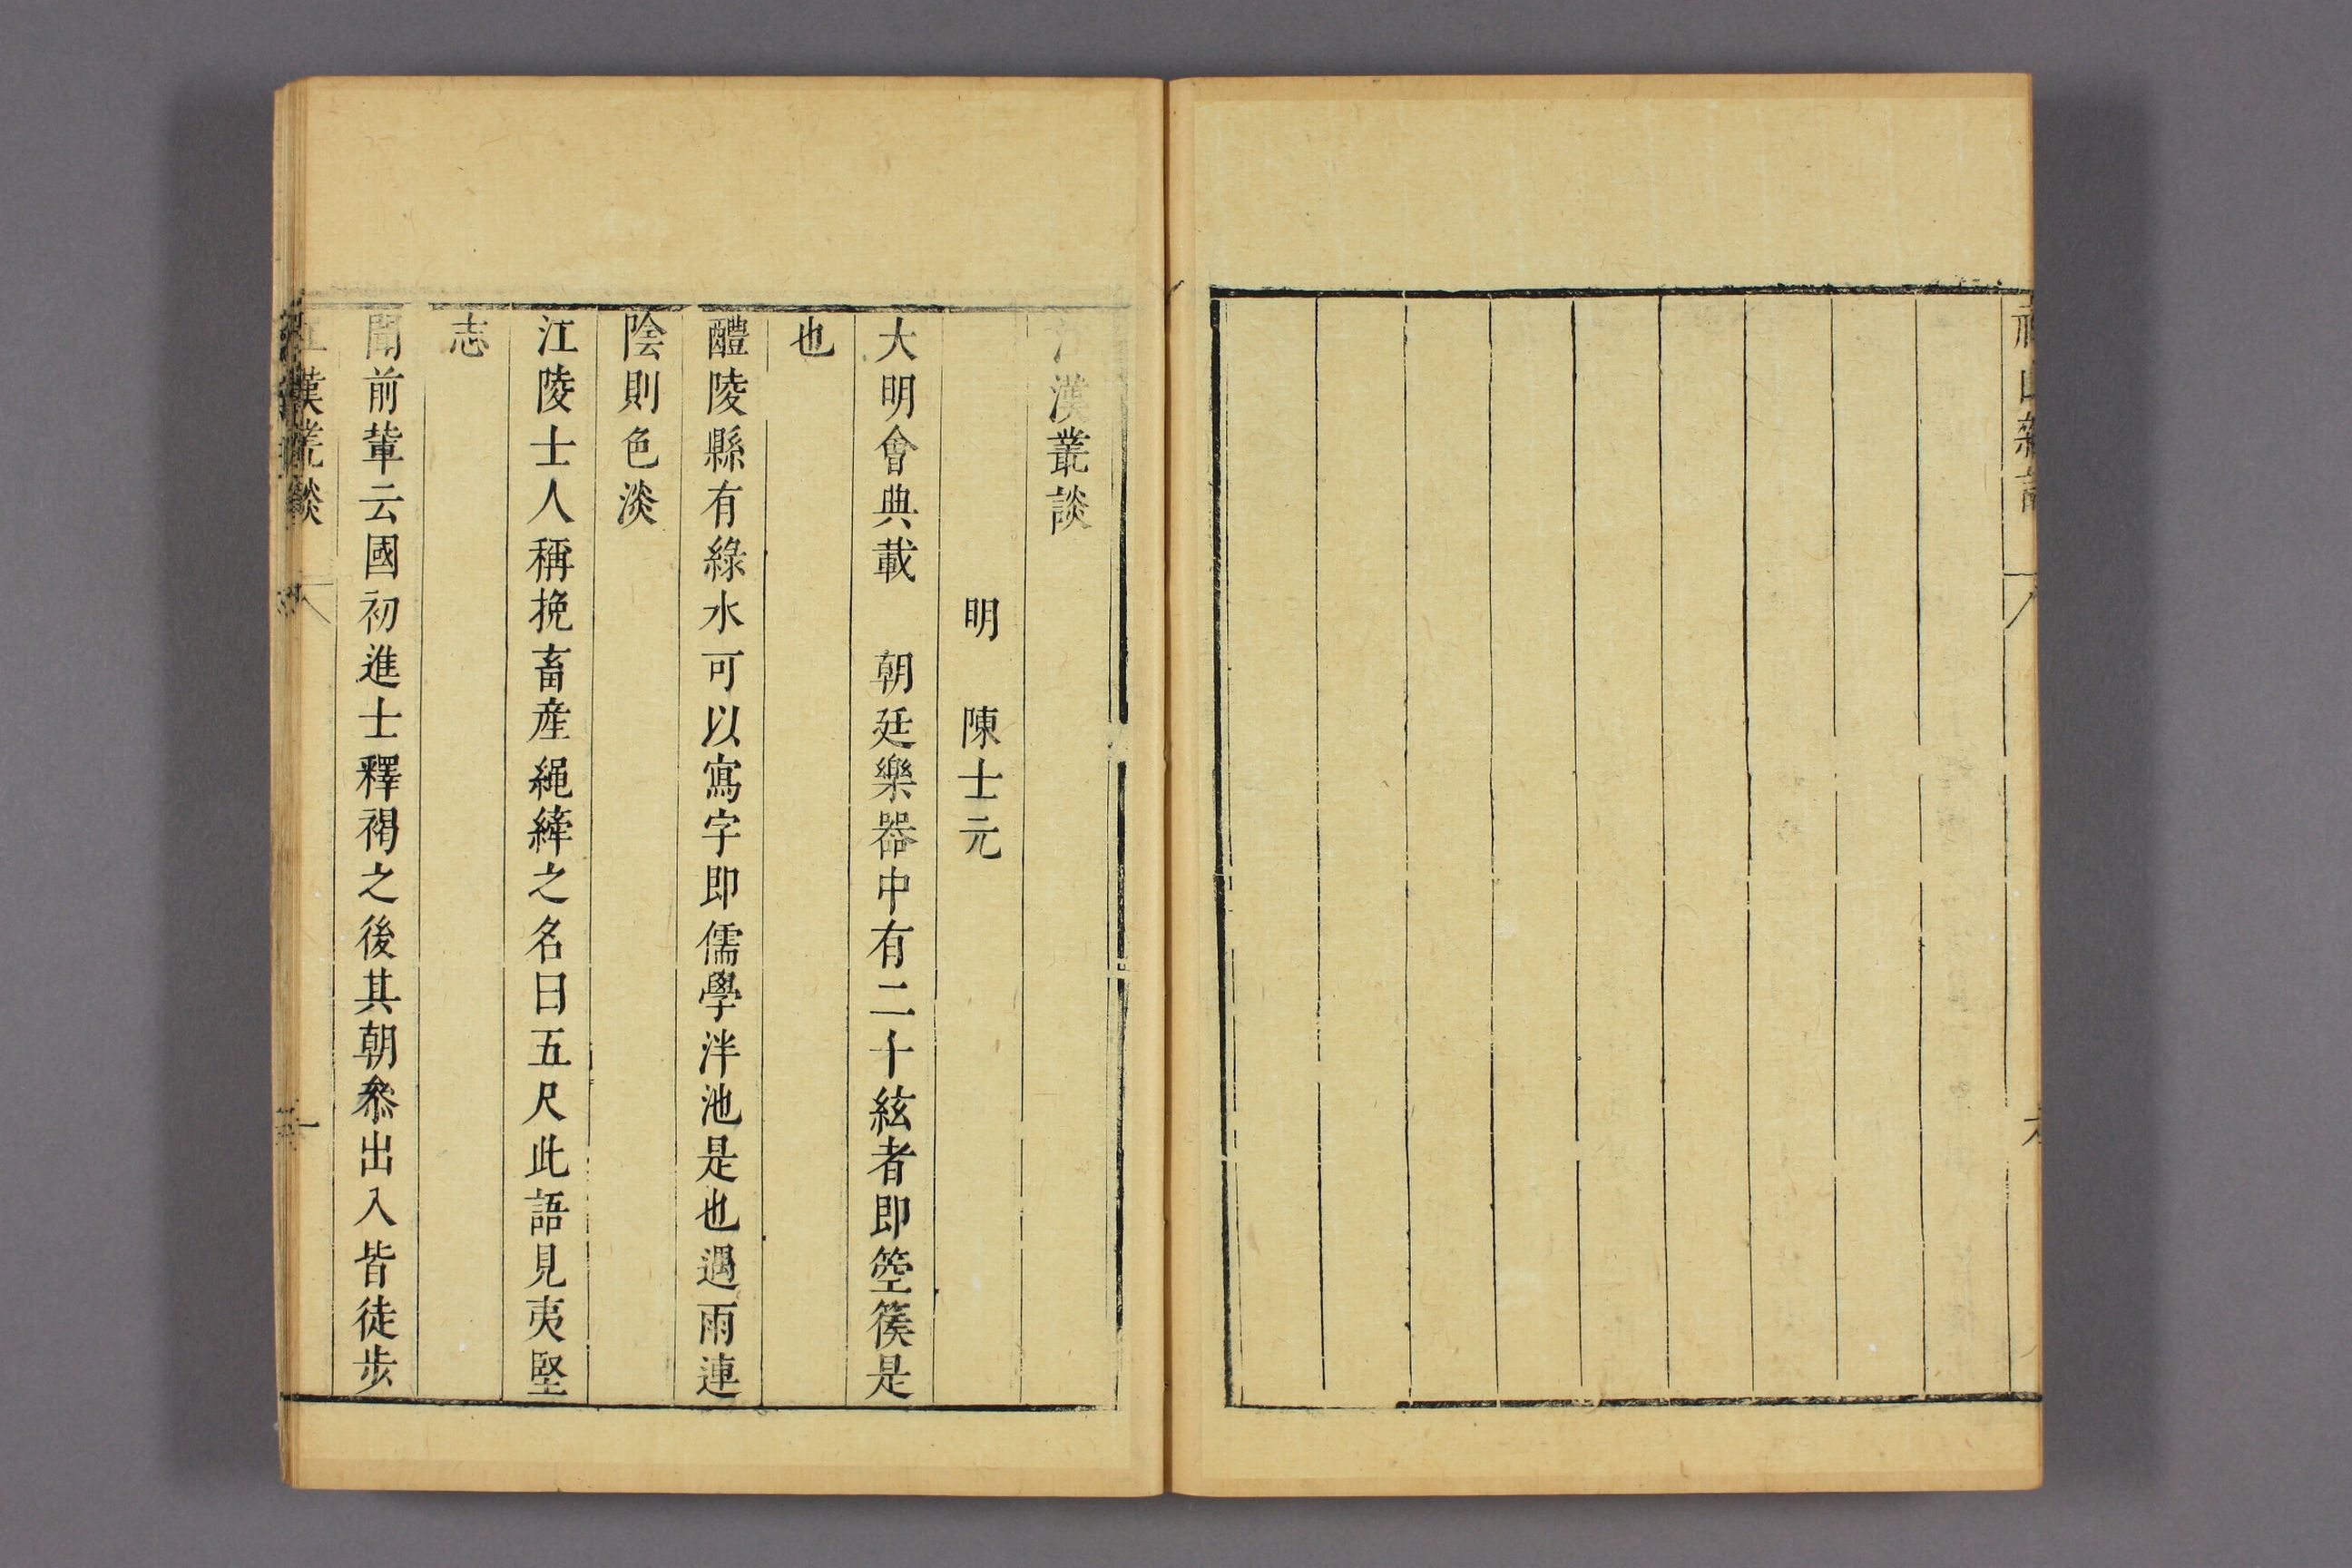 漢叢談
明　陳士元
大明會典載　朝廷樂器中有二十絃者即箜篌是
也
醴陵縣有綠水可以寫字即儒學泮池是也遇雨連
陰則色淡
江陵士人稱挽畜産繩縴之名曰五尺此語見夷堅
志
聞前輩云國初進士釋褐之後其朝叅出入皆徒步
漢叢談
一